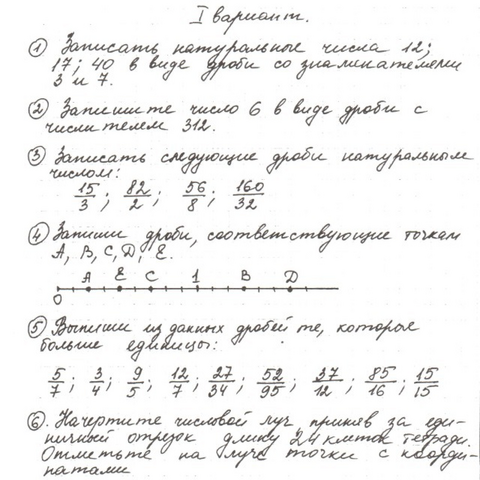 I вариант.
① Записать натуральные числа 12;
17; 40 в виде дроби со знаменателем
3 и 7.
② Запишите число 6 в виде дроби с
числителем 312.
③ Записать следующие дроби натуральным
числом:
15/3; 82/2; 56/8; 160/32
④ Запиши дроби, соответствующие точкам
A, B, C, D, E.
A E C 1 B D
0
⑤ Выпиши из данных дробей те, которые
больше единицы:
5/7; 3/4; 9/5; 12/7; 27/34; 52/95; 37/12; 85/16; 15/15
⑥. Начертите числовой луч приняв за еди-
ничный отрезок длину 24 клеток тетради.
Отметьте на луче точки с коорди-
натами